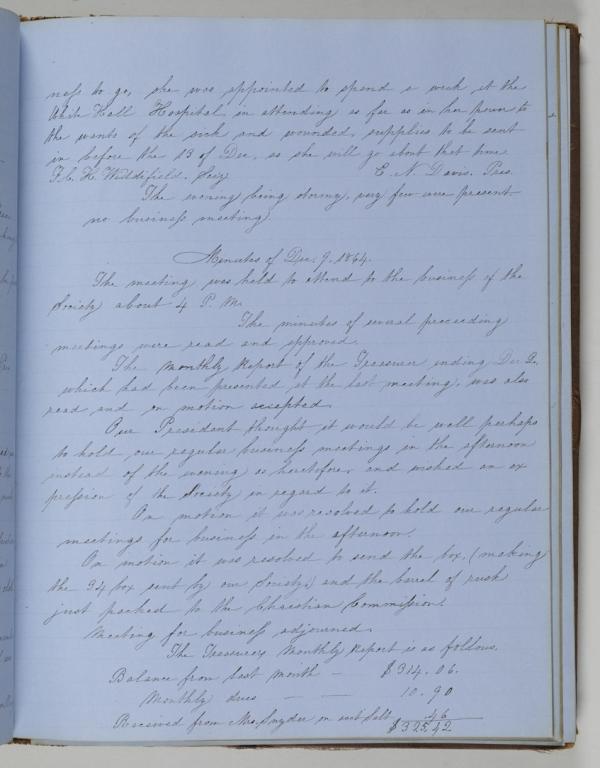 ness to go, she was appointed to spend a week at the
White Hall Hospital, in attending as far as in her power to
the wants of the sick and wounded, supplies to be sent
in before the 13 of Dec, as she will go about that time
H. Widdifield. Secy E. N. Davis. Pres.
The evening being stormy, very few were present
no business meeting
Minutes of Dec. 9. 1864.
The meeting was held to attend to the business of the
Society about 4 P. M.
The minutes of several preceeding
meetings were read and approved.
The Monthly Report of the Treasurer ending Dec 2.
which had been presented at the last meeting, was also
read and on motion accepted.
Our President thought it would be well perhaps
to hold our regular business meetings in the afternoon
instead of the evening as heretofore, and wished an ex
pression of the Society in regard to it.
On motion it was resolved to hold our regular
meetings for business in the afternoon.
On motion it was resolved to send the box, (making
the 94 box sent by our Society) and the barel of rusk
just packed to the Christian Commission.
Meeting for business adjourned.
The Treasurers Monthly Report is as follows.
Balance from last month — $314.06.
Monthly dues — — 10.90
Received from Mrs. Snyder on acct Salt .46
$325.42